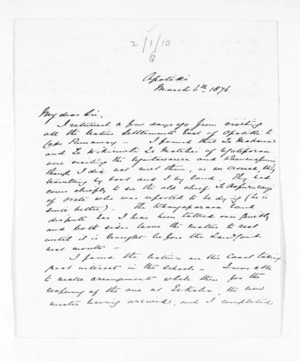 2/1/10
Opotiki
March 6th 1876
My dear Sir,
I returned a few days ago from visiting
all the Native Settlements East of Opotiki to
Cape Runaway — I found that
and Te Wikiriwhi Te Matehae of
were visiting the and
though I did not meet them, as we crossed, they
travelling by boat and I by land. They had
come chiefly to see the old chief
of who was reported to be dying (he is
since better). The land
dispute has I was been talked over
and both sides leave the matter to rest
until it is brought before the Land Court
next month —
I found the Natives on the Coast taking
great interest in the Schools — I was able
to make arrangements while there for the
reopening of the one at Te Kaha, the new
master having arrived, and I completed